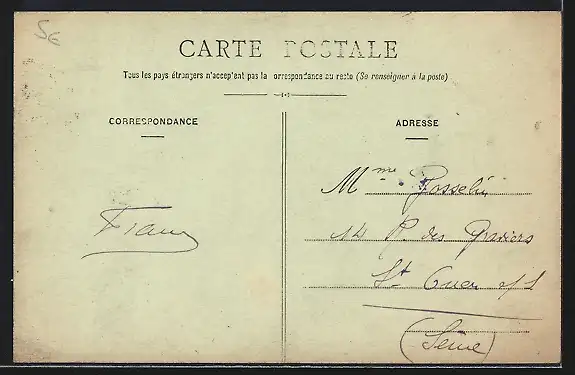 5€
CARTE POSTALE
Tous les pays étrangers n'accep'ent pas la orrespondance au recto (Se renseigner à la poste)
CORRESPONDANCE
ADRESSE
Mme Josselin
14 R. des Graviers
St Ouen s/S
(Seine)